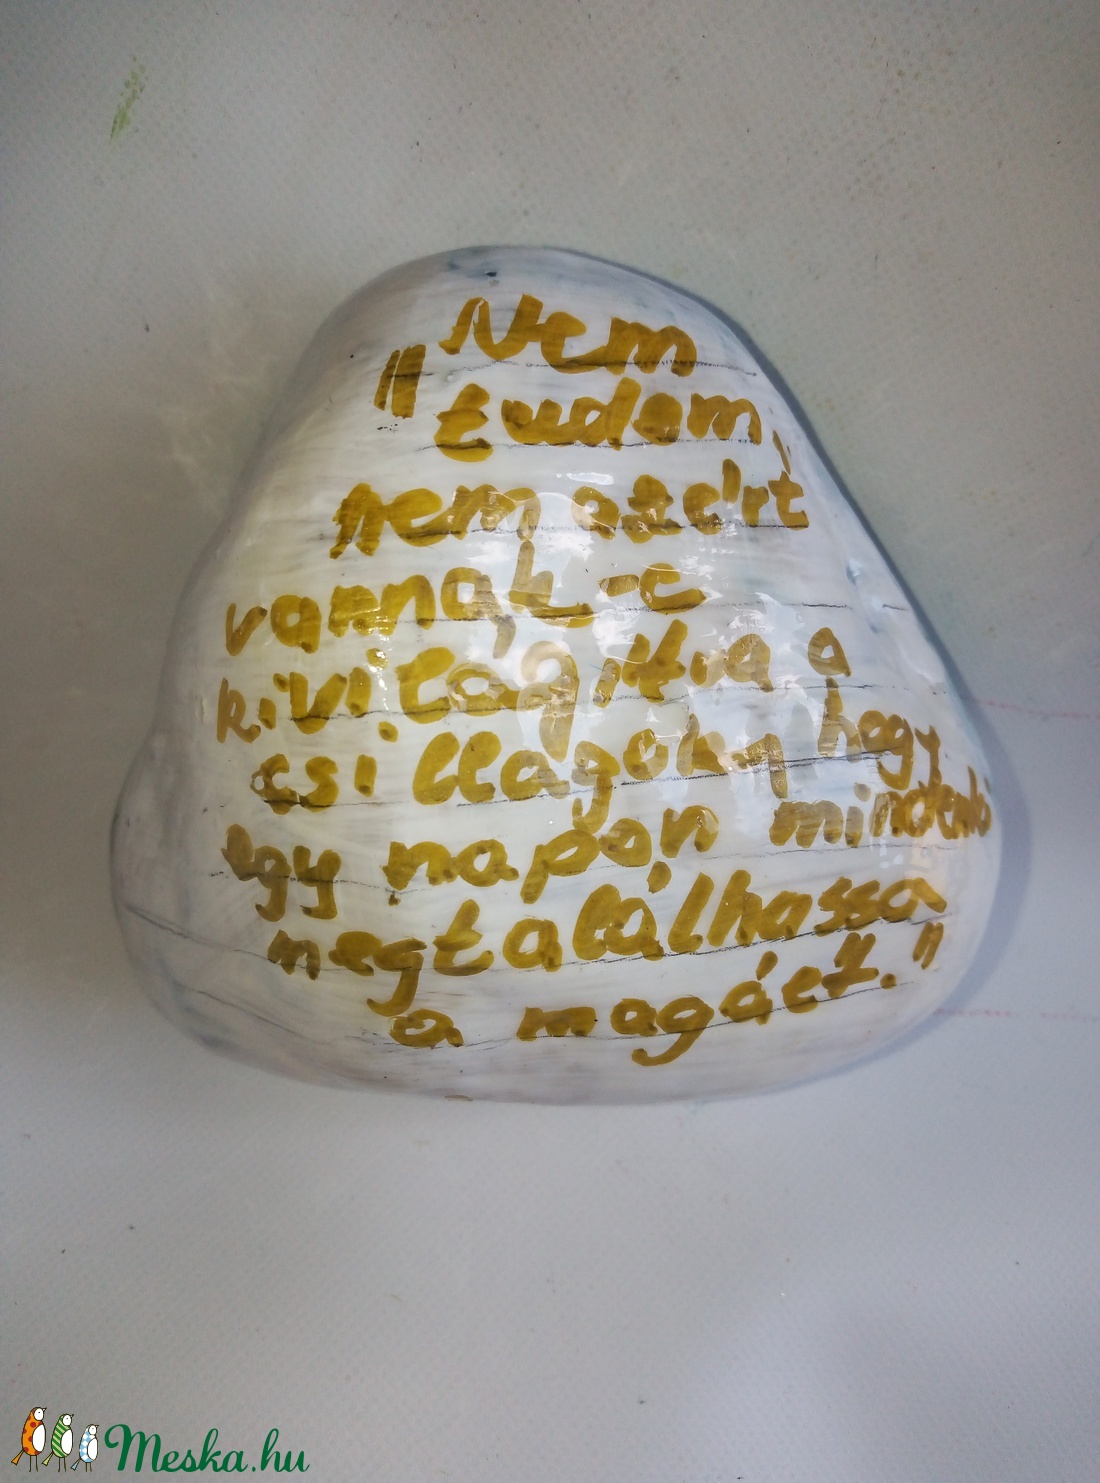 "Nem
tudom,
nem azért
vannak-e
kivitágitva a
csillagok, hogy
egy napon mindenki
megtalálhassa
a magáét."
Meska.hu